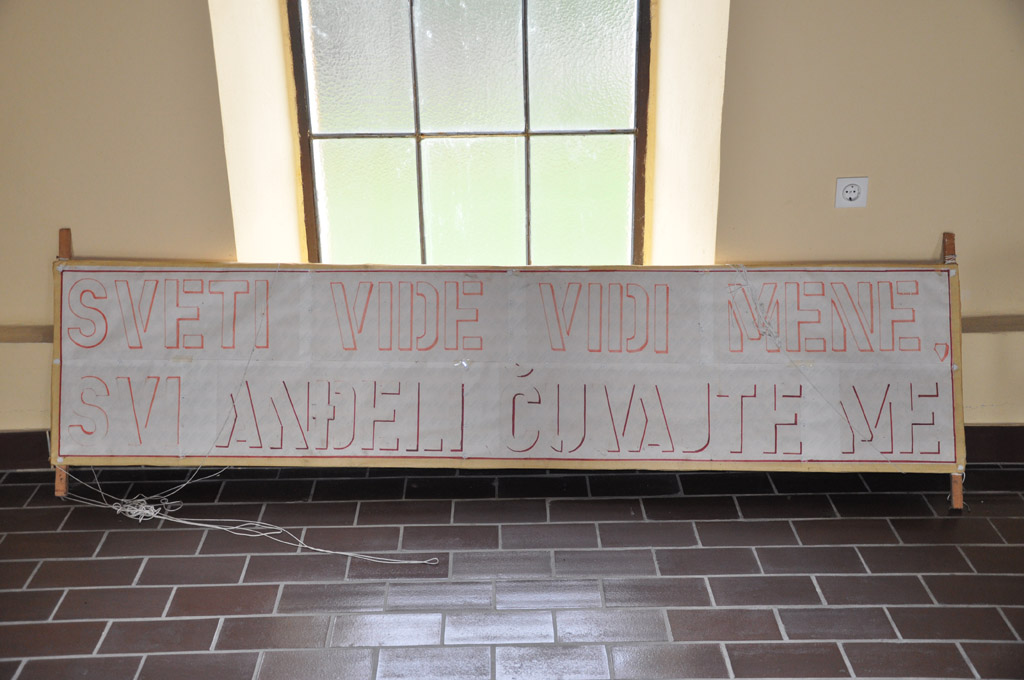 SVETI VIDE VIDI MENE,
SVI ANĐELI ČUVAJTE ME